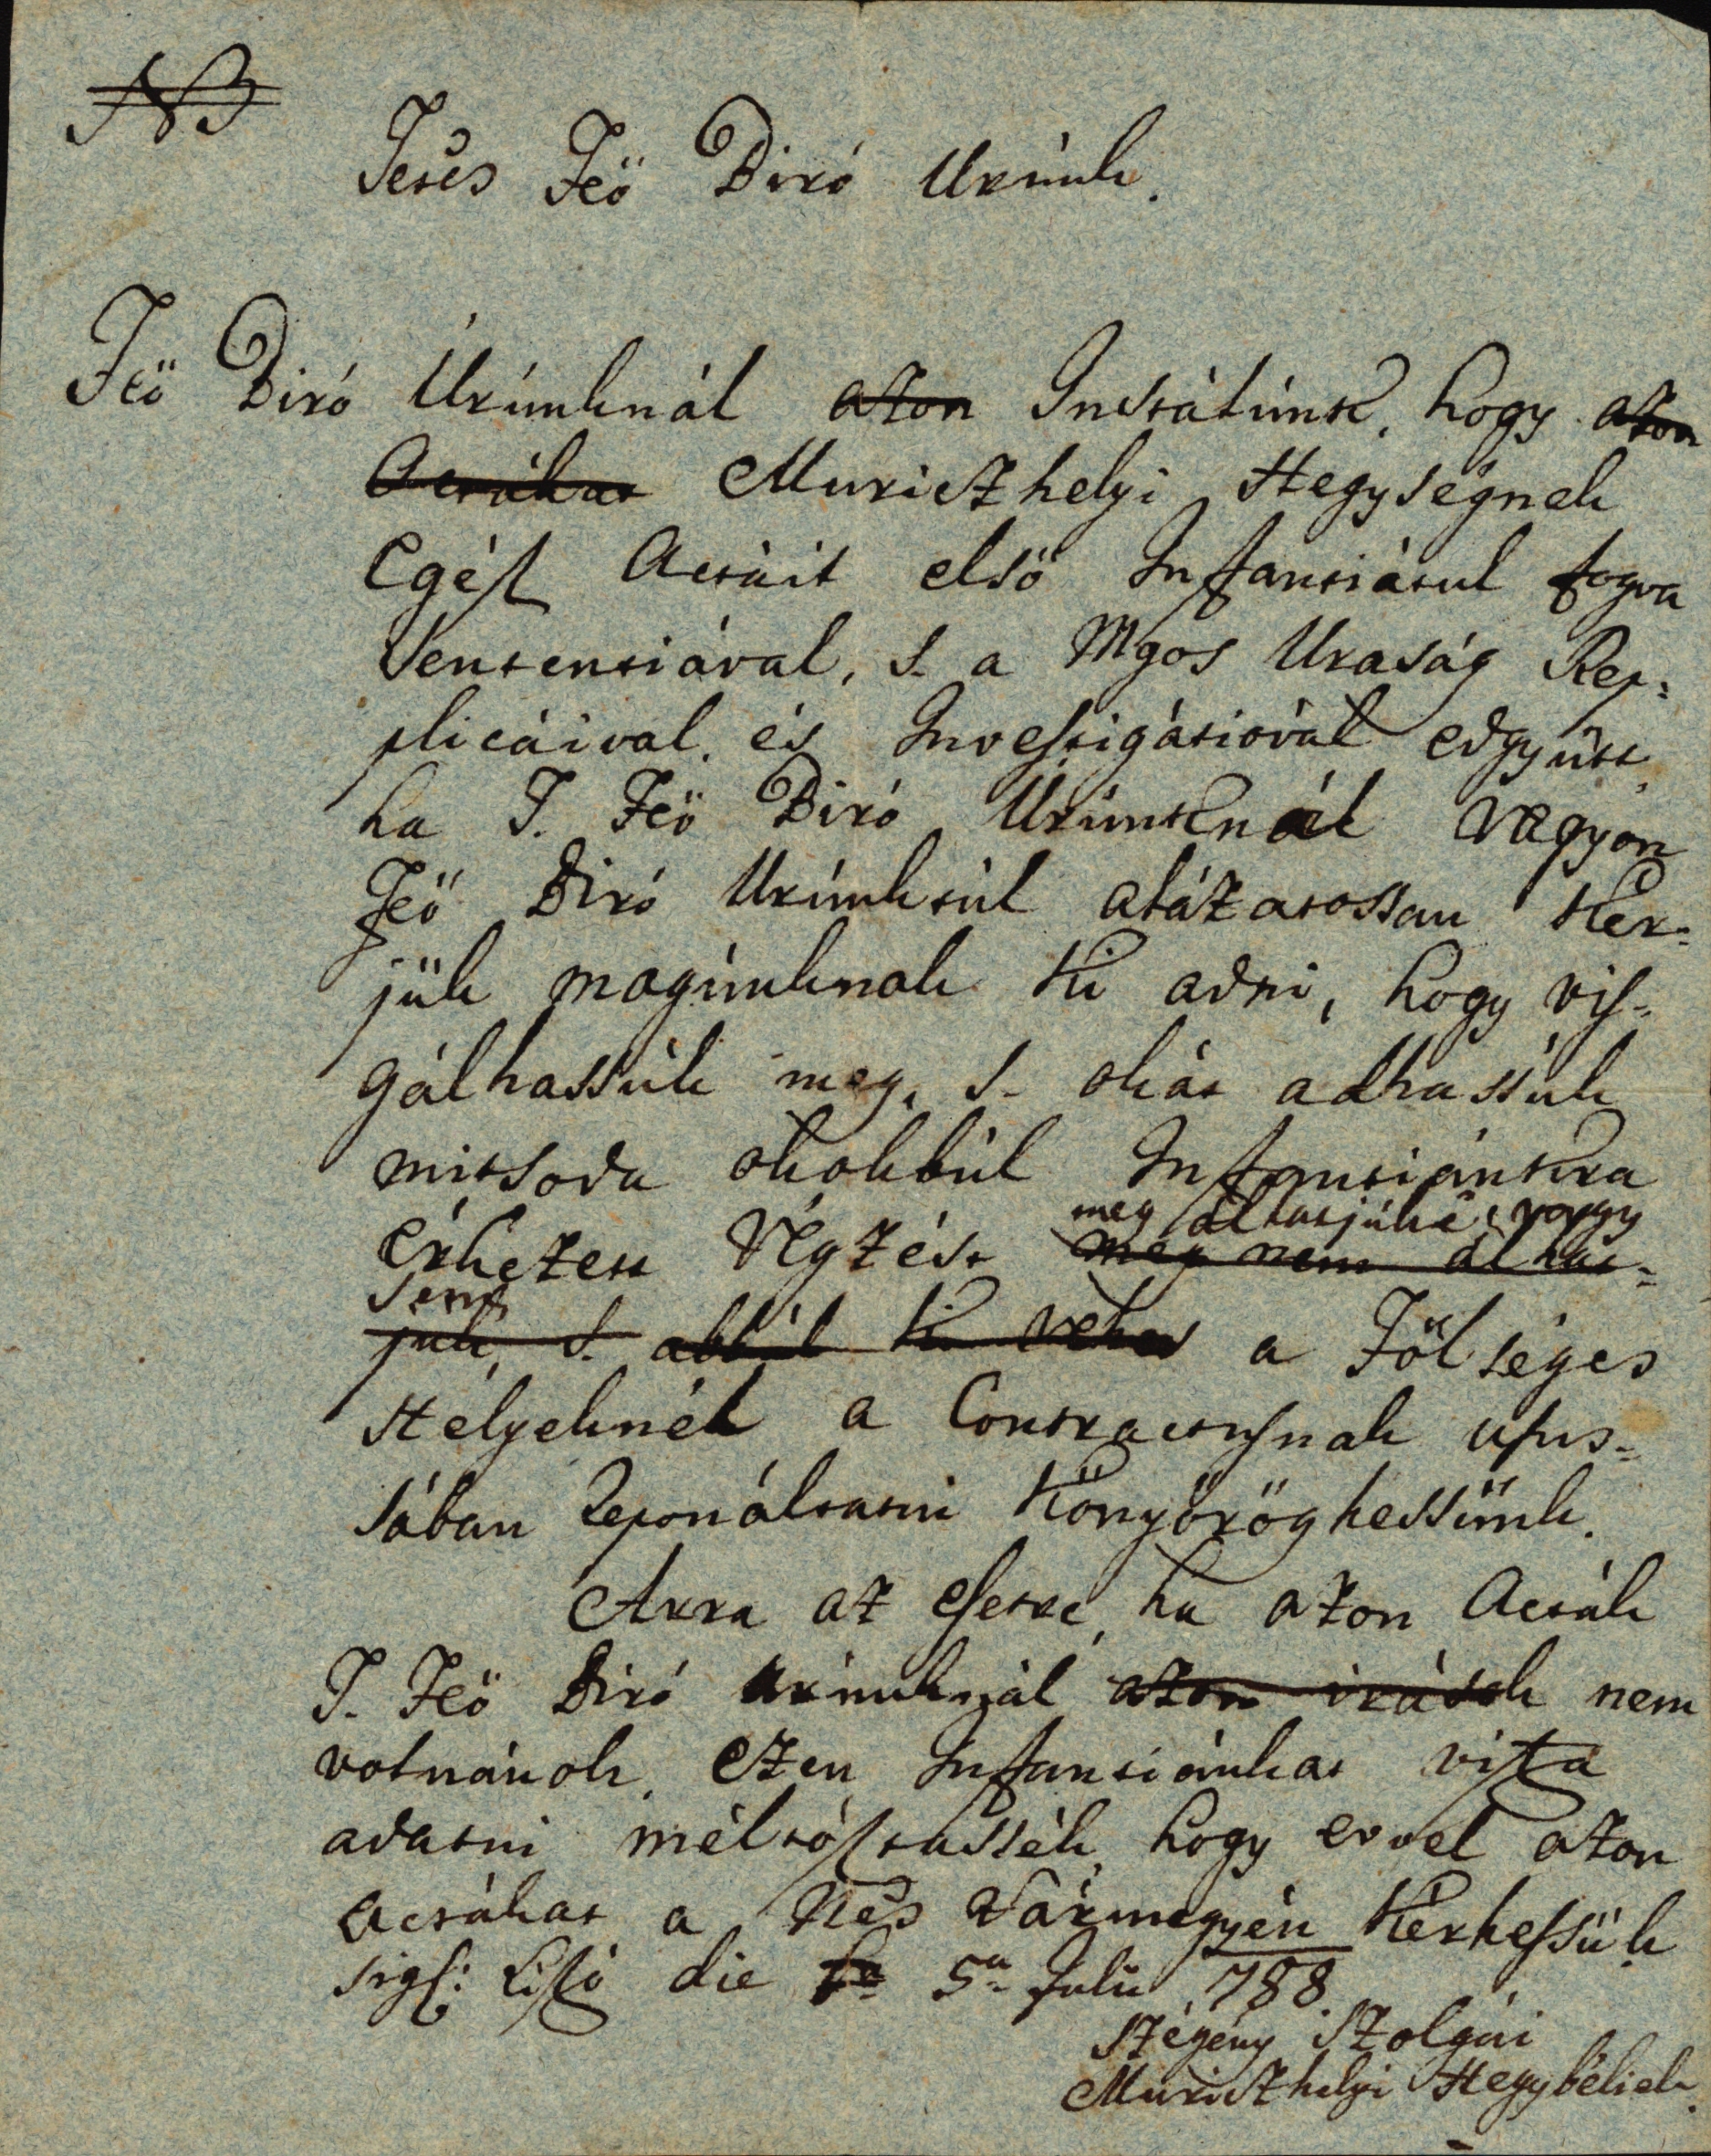 NB
Tetės Feö Biró Urúnk.
Feö Biró Urúnknál azon Instálúnk, hogy azon
Actákat Muriczhelyi Hegységnek
Egész Actáit első Instantiátul fogva
Sententiával, s. a Mgos Uraság Rep-
plicáival, és Investigátiovál edgyütt
ha T. Feö Biró Urúnknál vagyon
Feö Biró Urúnktúl alázatossan kér-
jük magúnknak ki adni, hogy vis-
gálhassúk meg, s. okát adhassúk
mitsoda okokbúl Instantiánkra
meg álhatjúké, vagy
érkezett Végzést meg nem álhat-
sem,
júk, s. abbúl ki vehet a Fölséges
Helyeknél a Contractusnak ususs-
sában Reponáltatni könyöröghessünk.
Arra az esetre, ha azon Acták
T. Feö Biró urúnknál azon irások nem
volnának, ezen Instantiánkat visza
adatni méltósztassék, hogy evvel azon
actákat a Nės Vármegyén kérhessük
sigl: Liszó die 5a Julii 788.
Szegény Szolgái
Muriczhelyi Hegybéliek.